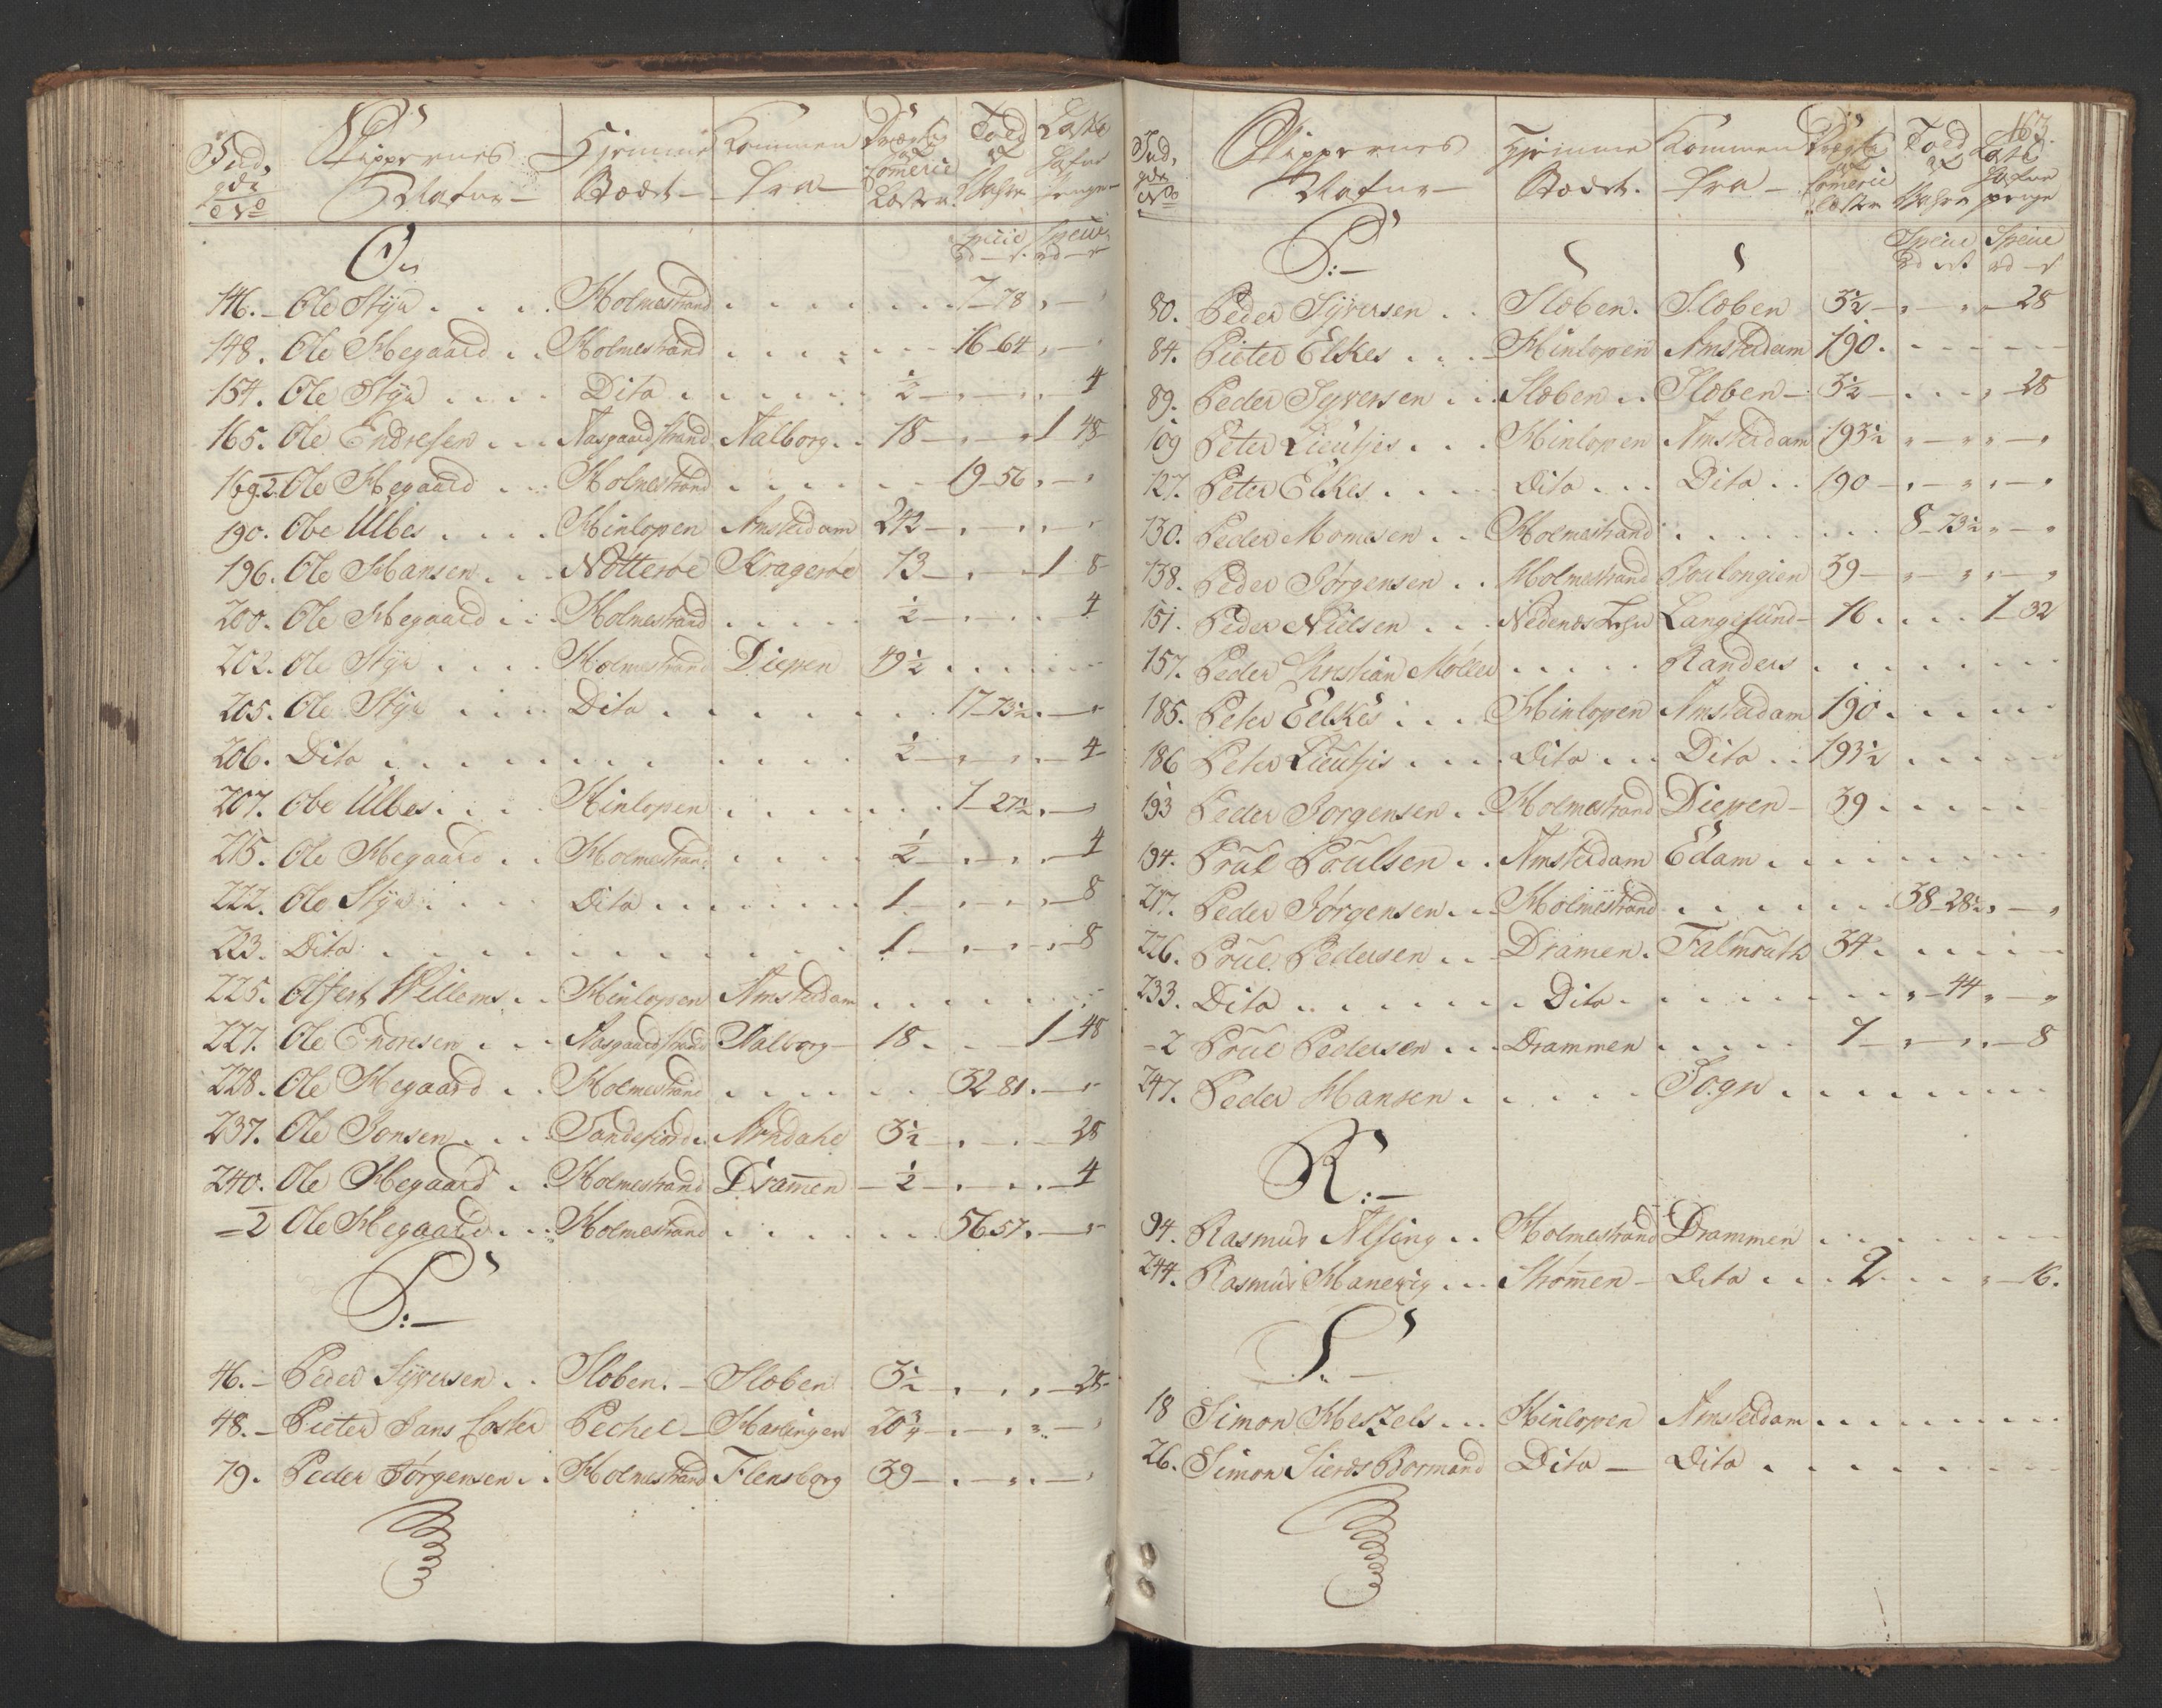 Skippernes Hjemme Kommen Told
Nafne Stædt fra
O
146. Ole Styr Holmestrand 7 78
148. Ole Hegaard Holmestrand 16 64
154. Ole Styr Dito ½ 4
165. Ole Endresen Aasgaardstrand Aalborg 18 1 48
169.2 Ole Hegaard Holmestrand 19 56
190. Obe Ulbes Hinlopen Amsterdam 242
196. Ole Hansen Nötteröe Krageröe 13 1 8
200. Ole Hegaard Holmestrand ½ 4
202. Ole Styr Holmestrand Diepen 49½
205. Ole Styr Dito 17 73½
206. Dito ½ 4
207. Obe Ulbes Hinlopen 1 27½
215. Ole Hegaard Holmestrand ½ 4
222. Ole Styr Dito 1 8
223. Dito 1 8
225. Olfert Willems Hinlopen Amsterdam
227. Ole Endresen Aasgaardstrand Aalborg 18 1 48
228. Ole Hegaard Holmestrand 32 81
237. Ole Jonsen Sandefiord Arndahl 3½ 28
240. Ole Hegaard Holmestrand Dramen ½ 4
2 Ole Hegaard Holmestrand 56 57
P:
46. Peder Syversen Sloben Sloben 3½ 28
48. Pieter Jans Coster Pechel Harlingen 20¾
79. Peder Jørgensen Holmestrand Flensborg 39
163.
Skippernes Hjemme Kommen Told
Nafne Stædt fra
P:
80. Peder Syversen Sloben Sloben 3½ 28
84. Pieter Elkes Hinlopen Amsterdam 190
89. Peder Syversen Sloben Sloben 3½ 28
109 Peter Lieutjis Hinlopen Amsterdam 193½
127. Peter Elkes Dito Dito 190
130. Peder Momesen Holmestrand 8 73½
138. Peder Jørgensen Holmestrand Boulongien 39
151. Peder Nielsen Nedenes Langesund 16 1 32
157. Peder Christian Møller Randers
185. Peter Eelkes Hinlopen Amsterdam 190
186 Peter Lieutjis Dito Dito 193½
193 Peder Jorgensen Holmestrand Diepen 39
194. Poul Poulsen Amsterdam Edam
217. Peder Jørgensen Holmestrand 38 28½
226. Poul Pedersen Dramen Falmouth 34
233. Dito Dito 44
2 Poul Pedersen Drammen 1 8
247. Peder Hansen Sogn
R:
94. Rasmus Alsing Holmestrand Drammen
244. Rasmus Hanevig Strømen Dito 2 16.
S.
18 Simon Hessels Hinlopen Amsterdam
26. Simon Sierds Bormand Dito Dito